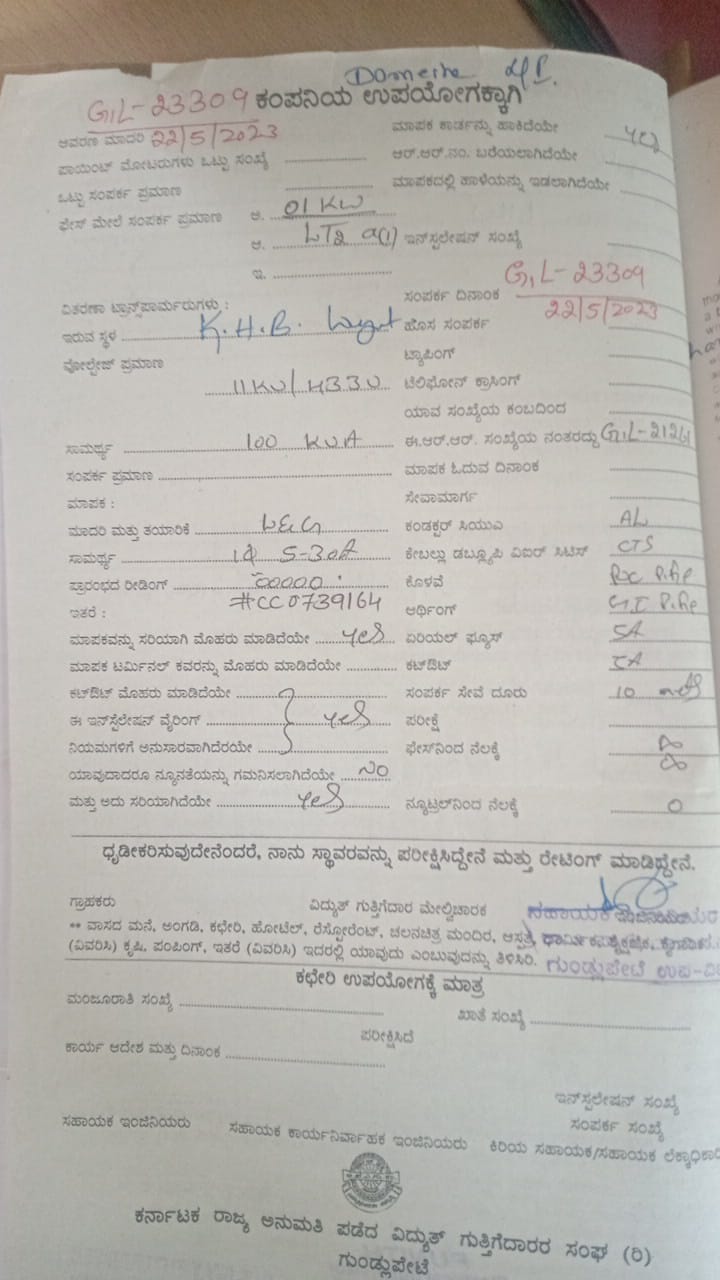 Domestic
GIL-23309 ಕಂಪನಿಯ ಉಪಯೋಗಕ್ಕಾಗಿ
ಆವರಣ ಮಾದರಿ 22/5/2023 ಮಾಪಕ ಕಾರ್ಡನ್ನು ಹಾಕಿದೆಯೇ yes
ಪಾಯಿಂಟ್ ಮೋಟರುಗಳು ಒಟ್ಟು ಸಂಖ್ಯೆ ಆರ್.ಆರ್.ನಂ. ಬರೆಯಲಾಗಿದೆಯೇ
ಒಟ್ಟು ಸಂಪರ್ಕ ಪ್ರಮಾಣ ಮಾಪಕದಲ್ಲಿ ಹಾಳೆಯನ್ನು ಇಡಲಾಗಿದೆಯೇ
ಫೇಸ್ ಮೇಲೆ ಸಂಪರ್ಕ ಪ್ರಮಾಣ ಅ. 01 KW
ಆ. LT2 a(1) ಇನ್‌ಸ್ಟಲೇಷನ್ ಸಂಖ್ಯೆ
ಇ.
ವಿತರಣಾ ಟ್ರಾನ್ಸ್‌ಪಾರ್ಮರುಗಳು : ಸಂಪರ್ಕ ದಿನಾಂಕ GIL-23309
22/5/2023
ಇರುವ ಸ್ಥಳ K.H.B. Layout ಹೊಸ ಸಂಪರ್ಕ
ವೋಲ್ಟೇಜ್ ಪ್ರಮಾಣ ಟ್ಯಾಪಿಂಗ್
11KV/433V ಟೆಲಿಫೋನ್ ಕ್ರಾಸಿಂಗ್
ಯಾವ ಸಂಖ್ಯೆಯ ಕಂಬದಿಂದ
ಸಾಮರ್ಥ್ಯ 100 KVA ಈ.ಆರ್.ಆರ್. ಸಂಖ್ಯೆಯ ನಂತರದ್ದು GIL-21261
ಸಂಪರ್ಕ ಪ್ರಮಾಣ ಮಾಪಕ ಓದುವ ದಿನಾಂಕ
ಮಾಪಕ : ಸೇವಾಮಾರ್ಗ
ಮಾದರಿ ಮತ್ತು ತಯಾರಿಕೆ L&G ಕಂಡಕ್ಟರ್ ಸಿಯುಎ AL
ಸಾಮರ್ಥ್ಯ 1Φ 5-30A ಕೇಬಲ್ಲು ಡಬ್ಲ್ಯೂಪಿ ವಿಐರ್ ಸಿಟಿಸ್ CTS
ಪ್ರಾರಂಭದ ರೀಡಿಂಗ್ 00000 ಕೊಳವೆ PVC Pipe
ಇತರೆ : #CC0739164 ಆರ್ಥಿಂಗ್ GI Pipe
ಮಾಪಕವನ್ನು ಸರಿಯಾಗಿ ಮೊಹರು ಮಾಡಿದೆಯೇ yes ಏರಿಯಲ್ ಫ್ಯೂಸ್ 5A
ಮಾಪಕ ಟರ್ಮಿನಲ್ ಕವರನ್ನು ಮೊಹರು ಮಾಡಿದೆಯೇ ಕಟ್‌ಔಟ್ 5A
ಕಟ್‌ಔಟ್ ಮೊಹರು ಮಾಡಿದೆಯೇ ಸಂಪರ್ಕ ಸೇವೆ ದೂರು 10 mts
ಈ ಇನ್‌ಸ್ಟಲೇಷನ್ ವೈರಿಂಗ್ yes ಪರೀಕ್ಷೆ
ನಿಯಮಗಳಿಗೆ ಅನುಸಾರವಾಗಿದೆರಯೇ ಫೇಸ್‌ನಿಂದ ನೆಲಕ್ಕೆ ∞
∞
ಯಾವುದಾದರೂ ನ್ಯೂನತೆಯನ್ನು ಗಮನಿಸಲಾಗಿದೆಯೇ NO
ಮತ್ತು ಅದು ಸರಿಯಾಗಿದೆಯೇ yes ನ್ಯೂಟ್ರಲ್‌ನಿಂದ ನೆಲಕ್ಕೆ 0
ಧೃಡೀಕರಿಸುವುದೇನೆಂದರೆ, ನಾನು ಸ್ಥಾವರವನ್ನು ಪರೀಕ್ಷಿಸಿದ್ದೇನೆ ಮತ್ತು ರೇಟಿಂಗ್ ಮಾಡಿದ್ದೇನೆ.
ಗ್ರಾಹಕರು ವಿದ್ಯುತ್ ಗುತ್ತಿಗೆದಾರ ಮೇಲ್ವಿಚಾರಕ ಸಹಾಯಕ
** ವಾಸದ ಮನೆ, ಅಂಗಡಿ, ಕಛೇರಿ, ಹೋಟೆಲ್, ರೆಸ್ಟೋರೆಂಟ್, ಚಲನಚಿತ್ರ ಮಂದಿರ, ಆಸ್ಪತ್ರೆ,
(ವಿವರಿಸಿ) ಕೃಷಿ, ಪಂಪಿಂಗ್, ಇತರೆ (ವಿವರಿಸಿ) ಇದರಲ್ಲಿ ಯಾವುದು ಎಂಬುವುದನ್ನು ತಿಳಿಸಿರಿ. ಗುಂಡ್ಲುಪೇಟೆ ಉಪ-ವಿ
ಕಛೇರಿ ಉಪಯೋಗಕ್ಕೆ ಮಾತ್ರ
ಮಂಜೂರಾತಿ ಸಂಖ್ಯೆ ಖಾತೆ ಸಂಖ್ಯೆ
ಪರೀಕ್ಷಿಸಿದೆ
ಕಾರ್ಯ ಆದೇಶ ಮತ್ತು ದಿನಾಂಕ
ಇನ್‌ಸ್ಟಲೇಷನ್ ಸಂಖ್ಯೆ
ಸಂಪರ್ಕ ಸಂಖ್ಯೆ
ಸಹಾಯಕ ಇಂಜಿನಿಯರು ಸಹಾಯಕ ಕಾರ್ಯನಿರ್ವಾಹಕ ಇಂಜಿನಿಯರು ಕಿರಿಯ ಸಹಾಯಕ/ಸಹಾಯಕ ಲೆಕ್ಕಾಧಿಕಾರಿ
ಕರ್ನಾಟಕ ರಾಜ್ಯ ಅನುಮತಿ ಪಡೆದ ವಿದ್ಯುತ್ ಗುತ್ತಿಗೆದಾರರ ಸಂಘ (ರಿ)
ಗುಂಡ್ಲುಪೇಟೆ